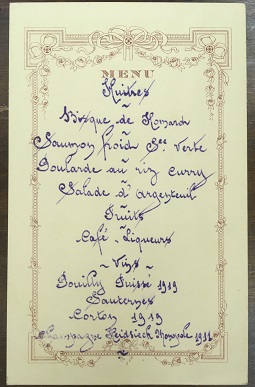 MENU
Huitres
Bisque de Homard
Saumon froid Sce Verte
Poularde au riz curry
Salade d'argenteuil
Fruits
Café - Liqueurs
- Vins -
Pouilly Fuisse 1919
Sauternes
Corton 1919
Champagne Heidsieck Monopole 1911